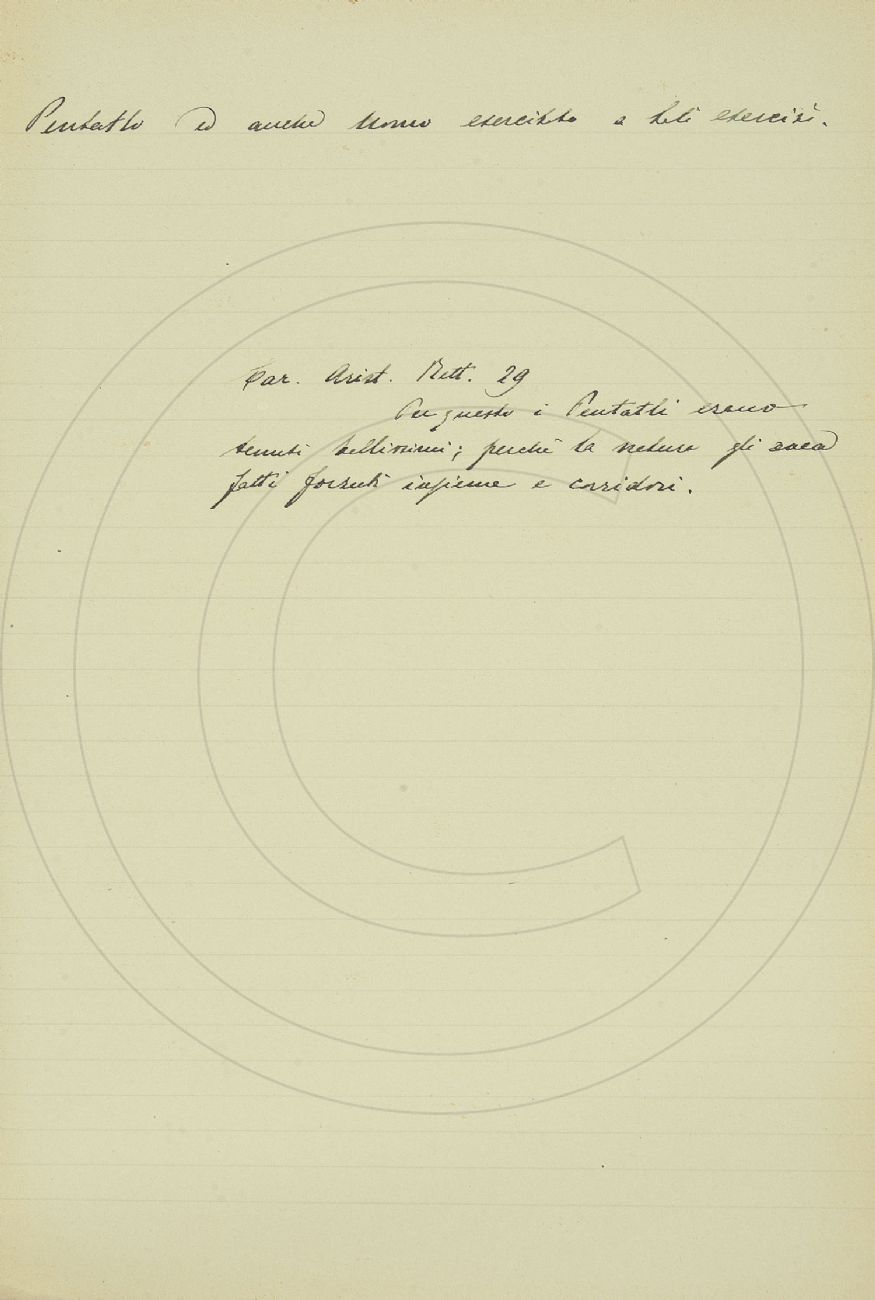 Pentatlo è anche Uomo esercitato a tali esercizi.
Car. Arist. Rett. 29
Per questo i Pentatli erano
tenuti bellissimi; perchè la natura gli avea
fatti forzuti insieme e corridori.